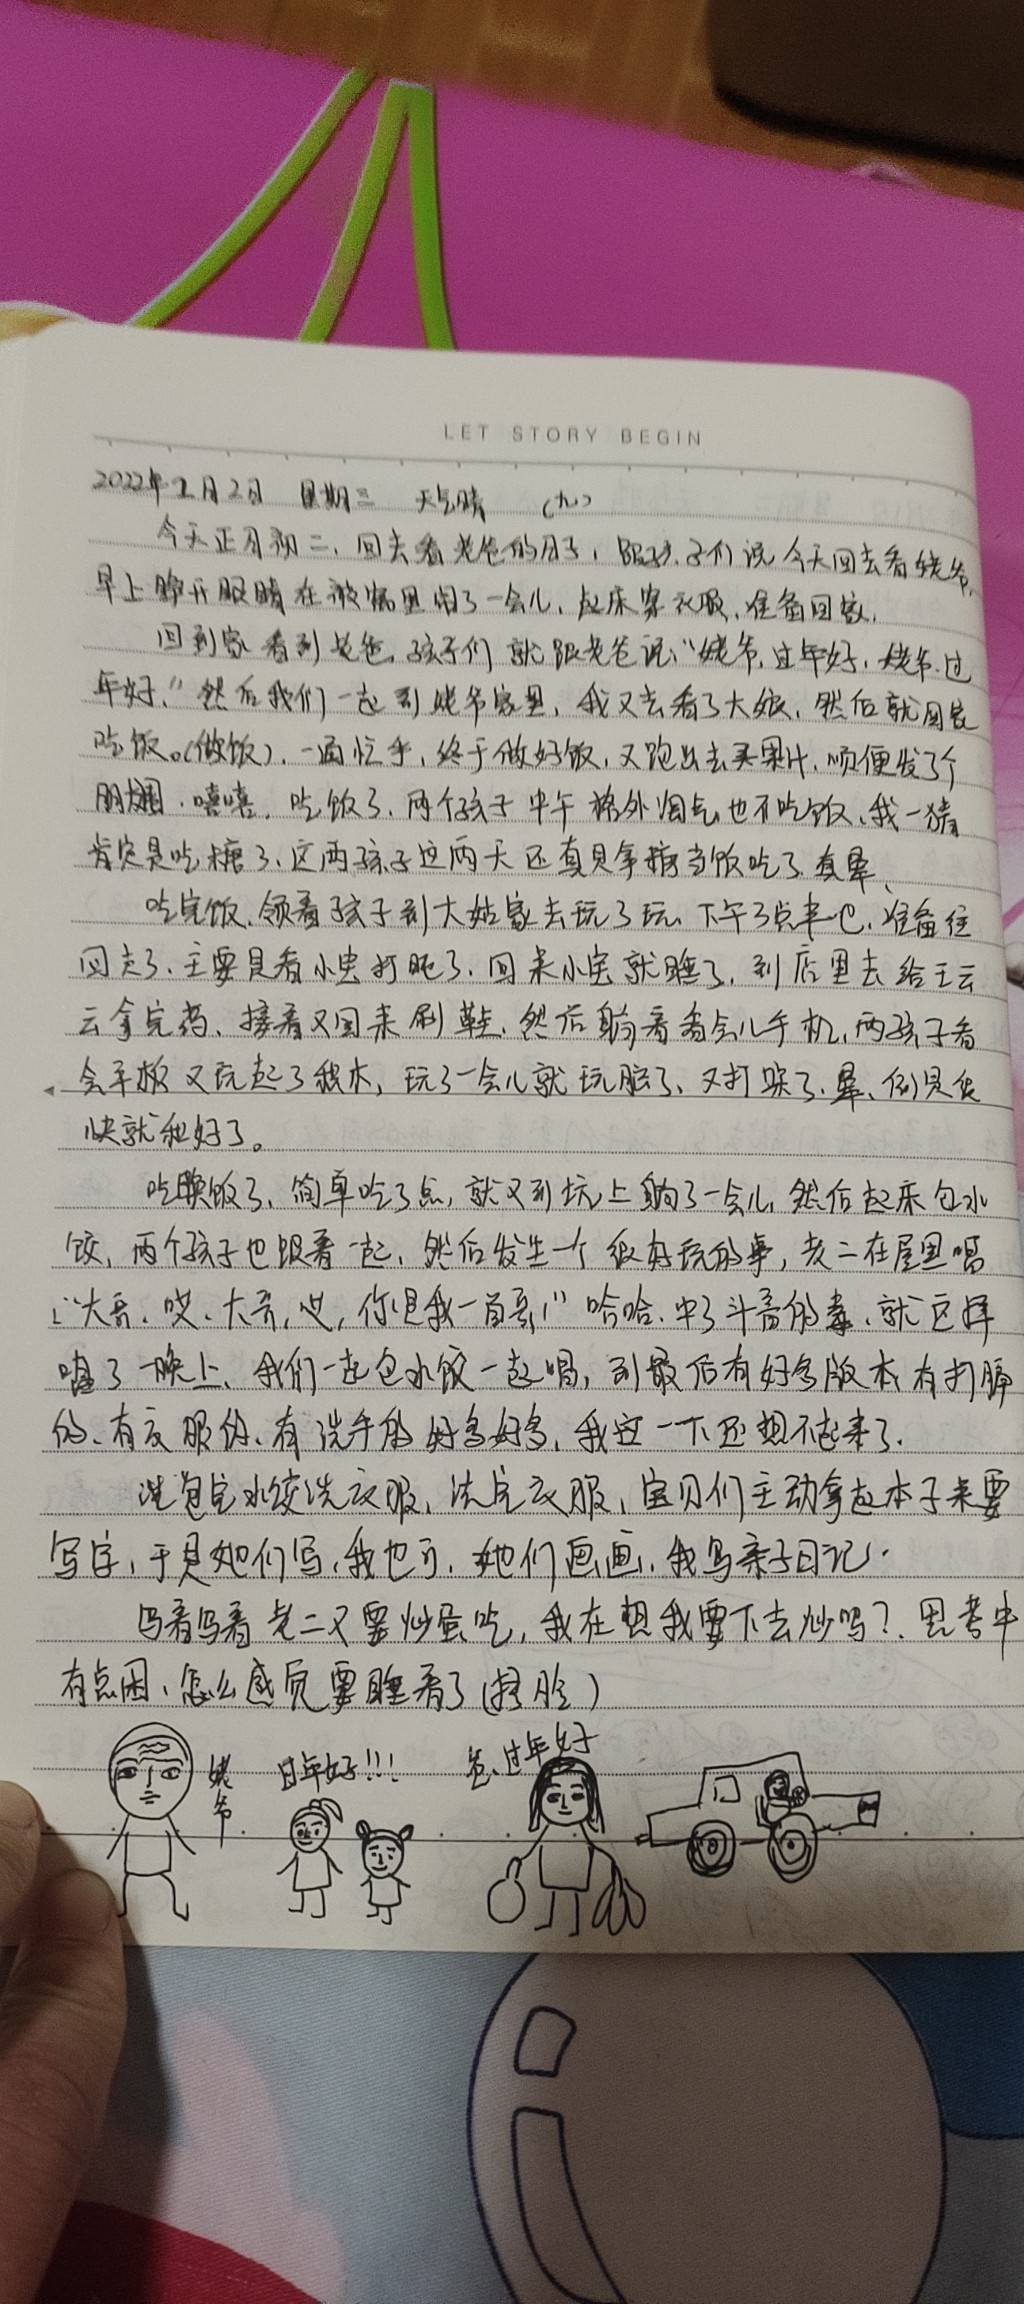 LET STORY BEGIN
2022年2月2日 星期三 天气晴 (九)
今天正月初二、回去看老爸的日子，跟孩子们说今天回去看姥爷，
早上睁开眼睛在被窝里闹了一会儿、起床穿衣服、准备回家，
回到家看到老爸，孩子们就跟老爸说：“姥爷，过年好，姥爷、过
年好，”然后我们一起到姥爷家里，我又去看了大娘，然后就回家
吃饭。(做饭)，一通忙乎，终于做好饭，又跑出去买果汁，顺便发了个
朋友圈，嘻嘻，吃饭了，两个孩子中午格外淘气也不吃饭、我一猜
肯定是吃糖了、这两孩子这两天还真是拿糖当饭吃了，真晕、
吃完饭、领着孩子到大姑家去玩了玩、下午3点半吧，准备往
回走了、主要是看小宝打盹了、回来小宝就睡了，到店里去给王云
云拿完药、接着又回来刷鞋、然后躺着看会儿手机，两孩子看
会平板又玩起了积木，玩了一会儿就玩恼了、又打哭了、晕、倒是很
快就和好了。
吃晚饭了、简单吃了点，就又到炕上躺了一会儿，然后起床包水
饺，两个孩子也跟着一起，然后发生一个很好玩的事，老二在屋里唱
：“大哥、哎、大哥，哎，你是我一首哥！”哈哈、中了斗音的毒、就这样
嗑了一晚上、我们一起包水饺一起唱，到最后有好多版本，有打脚
的、有衣服的、有洗手的好多好多，我这一下还想不起来了.
包完水饺洗衣服，洗完衣服，宝贝们主动拿起本子来要
写字，于是她们写，我也写，她们画画，我写亲子日记.
写着写着老二又要炒蛋吃，我在想我要下去炒吗？思考中
有点困、怎么感觉要睡着了(捂脸)
姥爷 过年好!!! 爸、过年好